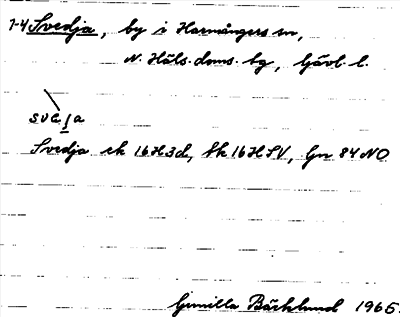 1-4 Svedja, by i Harmångers sn,
N. Häls. doms. bg, Gävl. l.
Svedja ek 16H3d, tk 16HSV, Gn 84 NO
Gunilla Bäcklund 1965.